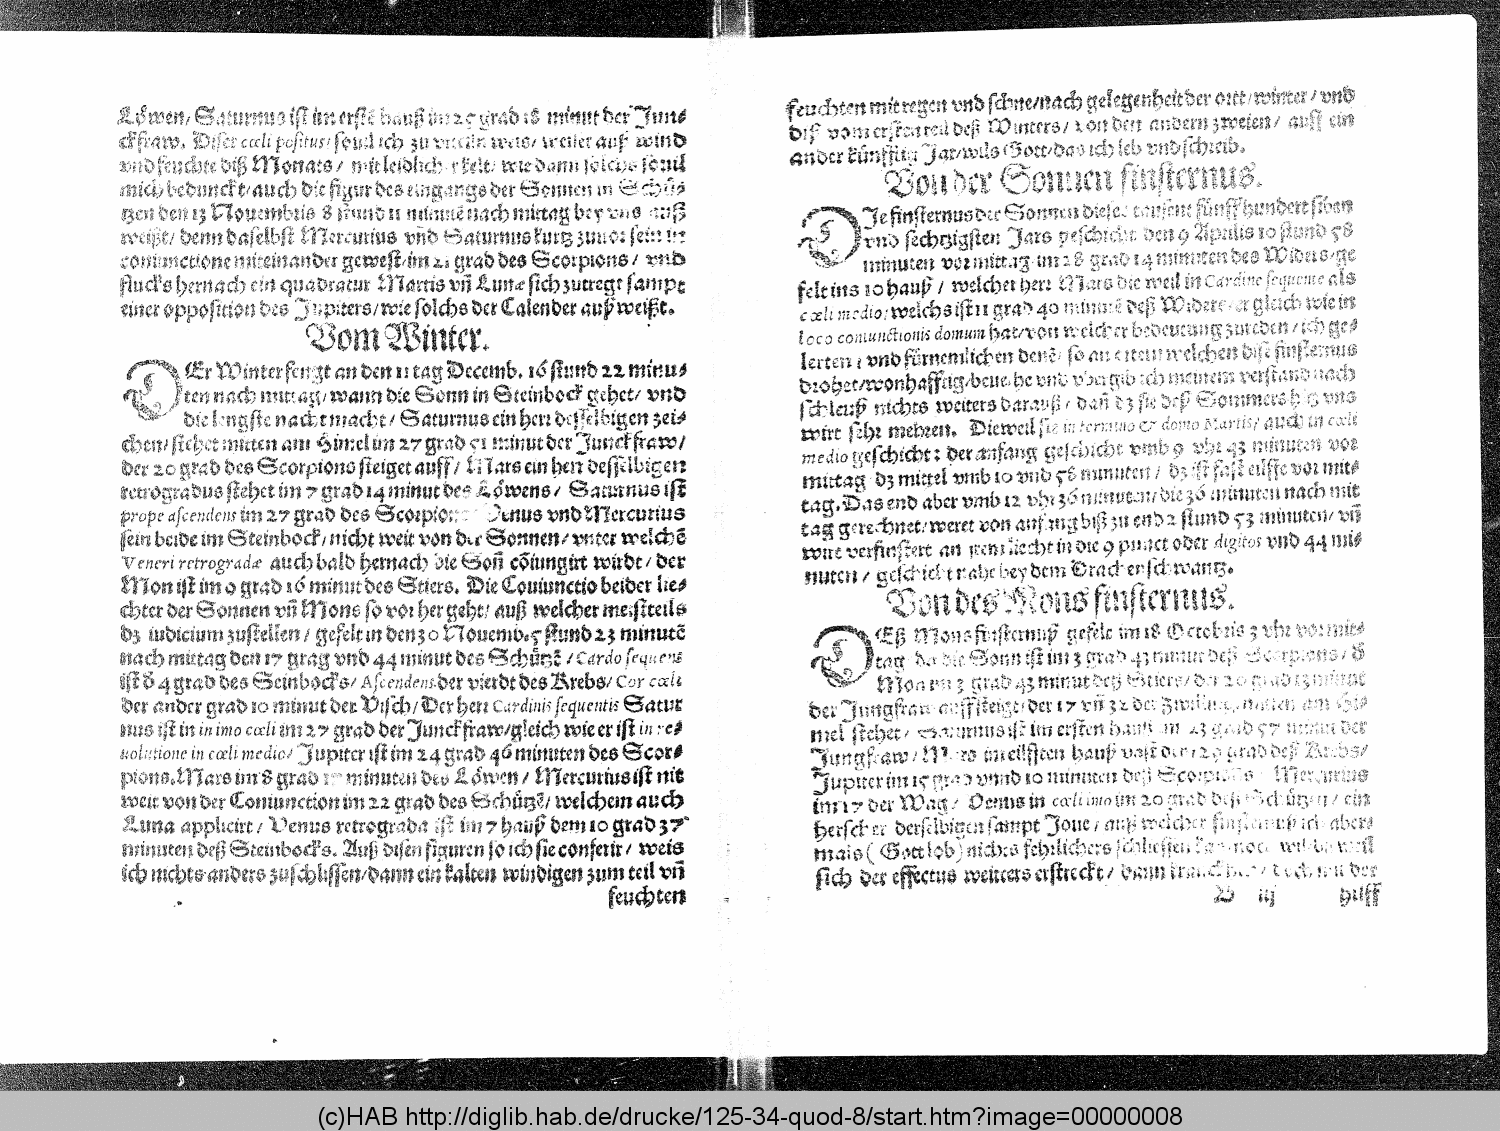 Löwen/ Saturnus ist im erste hauß im 25 grad 18 minut der Jun⸗
ckfraw. Diser cœli positus/ sovil ich zu weis/ weiset auf wind
vnd feuchte diß Monats/ mit leidlicher kelt/ wie dann solchs sovil
mich bedunckt/ auch die figur des eingangs der Sonnen in Schü⸗
tzen den 13 Nouembris 8 stund 11 minutē nach mittag bey vns auß
weißt/ denn daselbst Mercurius vñd Saturnus kurtz zuuor sein in
coniunctione miteinander gewest/ im 21 grad des Scorpions/ vnd
flucks hernach ein quadratur Martis vñ Lunæ sich zutregt sampt
einer opposition des Jupiters/ wie solchs der Calender außweißt.
Vom Winter.
DEr Winter fengt an den 11 tag Decemb. 16 stund 22 minu⸗
ten nach mittag/ wann die Sonn in Steinbock gehet/ vnd
die lengste nacht macht/ Saturnus ein herr desselbigen zei⸗
chen/ stehet mitten am Himel im 27 grad 51 minut der Junckfraw/
der 20 grad des Scorpions steiget auff/ Mars ein herr desselbigen
retrogradus stehet im 7 grad 14 minut des Löwens/ Saturnus ist
prope ascendens im 27 grad des Scorpions Venus vnd Mercurius
sein beide im Steinbock/ nicht weit von der Sonnen/ vnter welchē
Veneri retrogradæ auch bald hernach die Soñ cōiungirt wirdt/ der
Mon ist im 9 grad 16 minut des Stiers. Die Coniunctio beider lie⸗
chter der Sonnen vñ Mons so vorhergeht/ auß welcher meistteils
dz iudicium zustellen/ gefelt in den 30 Nouemb. 5 stund 23 minutē
nach mittag den 17 grag vnd 44 minut des Schützē/ Cardo sequens
ist d̄ 4 grad des Seinbocks/ Ascendens der vierdt des Krebs/ Cor cœli
der ander grad 10 minut der Visch/ Der herr Cardinis sequentis Satur
nus ist in in imo cœli im 27 grad der Junckfraw/ gleich wie er ist in re⸗
uolutione in cœli medio/ Jupiter ist im 24 grad 46 minuten des Scor⸗
pions. Mars im 8 grad minuten des Löwen/ Mercurius ist nit
weit von der Coniunction im 22 grad des Schützē/ welchem auch
Luna applicirt/ Venus retrograda ist im 7 hauß dem 10 grad 37
minuten deß Steinbocks. Auß disen figuren so ich sie conferir/ weis
ich nichts anders zuschlissen/ dann ein kalten windigen zum teil vñ
feuchten
feuchten mit regen vnd schne/ nach gelegenheit der ortt/ winter/ vnd
diß vom ersten teil deß Winters/ von den andern zweien/ auff ein
ander künfftig Jar/ wils Gott/ das ich leb vnd schreib.
Von der Sonnen finsternus.
DIe finsternus der Sonnen dieses tausent fünffhundert siben
vnd sechtzigsten Jars geschicht den 9 Aprilis 10 stund 58
minuten vormittag im 28 grad 14 minuten des Widers/ ge
felt ins 10 hauß/ welcher herr Mars die weil in Cardine sequente als
cœli medio/ welchs ist 11 grad 40 minutē deß Widers/ er gleich wie in
loco coniunctionis domum hat/ von welcher bedeutung zureden/ ich ge⸗
lerten/ vnd fürnemlichen denē/ so an welchen dise finsternus
drohet/ wonhafftig/ beuehe vnd vbergib ich meinem verstand nach
schleuß nichts weiters darauß/ dañ dz sie deß Sommers hitz vns
wirt sehr mehren. Dieweil sie in termino & domo Martis/ auch in cœli
medio geschicht: der anfang geschicht vmb 9 vhr 43 minuten vor
mittag dz mittel vmb 10 vnd 58 minuten/ dz ist fast eilffe vor mit⸗
tag. Das end aber vmb 12 vhr 36 minuten/ die 36 minuten nach mit
tag gerechnet/ weret von anfang biß zu end 2 stund 53 minuten/ vñ
wirt verfinstert an jrem liecht in die 9 punct oder digitos vnd 44 mi⸗
nuten/ geschicht nahe bey dem Drackenschwantz.
Von des Mons finsternus.
DEß Mons finsternuß gefelt im 18 Octobris 3 vhr vormit⸗
tag da die Sonn ist im 3 grad 43 minut deß Scorpions/ d̄
Mon im 3 grad 43 minut deß Stiers/ der 20 grad 13 minut
der Jungfraw auffsteigt/ der 17 vñ 32 der Zwiling mitten am Hi⸗
mel stehet/ Saturnus ist im ersten hauß im 23 grad 57 minut der
Jungfraw/ Mars im eilfften hauß vast der 29 grad deß Krebs/
Jupiter im 15 grad vnnd 10 minuten deß Scorpions Mercurius
im 17 der Wag/ Venus in cœli imo im 20 grad deß Schützen/ ein
herscher derselbigen sampt Joue/ auß welcher finsternuß ich aber⸗
mals (Gott lob) nichts fehrlichers schliessen kan noch wil/
sich der effectus weitters erstreckt/ dann der
B iij hilff
(c)HAB http://diglib.hab.de/drucke/125-34-quod-8/start.htm?image=00000008